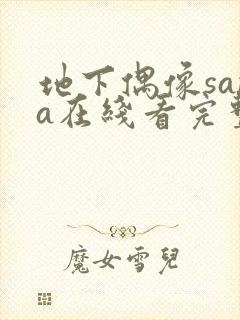 地下偶像sa
a在线看完
魔女雪兒